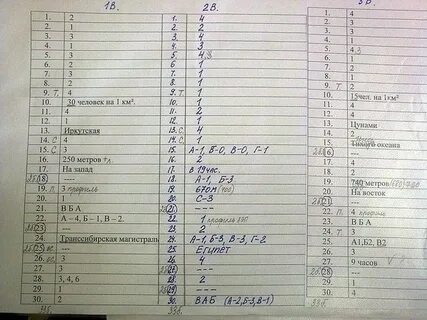 1В.
1. 2
2. 2
3. 3
4. 4
5. 4
6. 2
7. 3
8. 3
9. Т. 4
10. 30 человек на 1 км².
11. 4
12. 1
13. Иркутская
14. С 4
15. С 3
16. 250 метров
17. На запад
18 ----
19. п. 3 профиль
20. 1
21. В Б А
22. А – 4, Б – 1, В – 2.
23 ----
24. Транссибирская магистраль
25 ----
26. 3
27. 3
28. 3, 4, 6
29. 1
30. 2
2В.
1. 4
2. 2
3. 4
4. 3
5. 4,3
6. 1
7. 1
8. 1
9. Т. 1
10. 1
11. 2
12. 1
13. С. 4
14. С. 1
15. А-1, Б-0, В-0, Г-1
16. 2
17. в 19 час.
18. А-1, Б-3
19. 670м
20. С-3
21 ----
22. 1 профиль
23. 2
24. А-1, Б-3, В-3, Г-2
25. Египет
26. 4
27. 1
28 ----
29 ----
30. ВАБ (А-2, Б-3, В-1)
3В.
1. 4
2. 3
3. 3
4. 1
5. 4,3
6. 2
7. 1
8. 1
9. Т. 2
10. 15чел. на 1 км²
11. 4
12. 1
13. Цунами
14. 2
15. Тихого океана
17. 3
18. 1
19. 740 метров
20. На восток
21 ----
22. п. 4 профиль
23. 3
24. 2
25. А1,Б2, В2
26. 3
27. 9 часов
28 ----
29. 1
30. 2